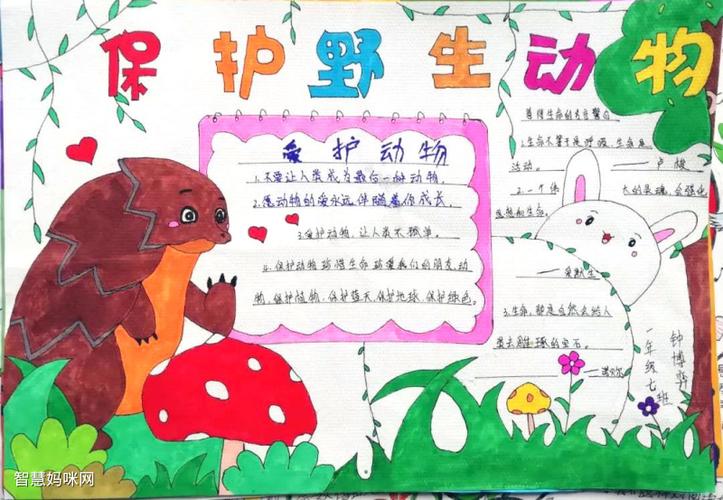 保护野生动物
爱护动物
1.不要让人类成为最后一种动物。
2.愿动物的爱永远伴随着你成长。
3.爱护动物,让人类不孤单。
4.保护动物珍惜生命珍爱我们的朋友,动
物,保护植物,保护蓝天,保护地球,保护绿色。
善待生命的名言警句
1.生命不等于是呼吸,生命是
活动。——卢梭
2.一个伟大的灵魂,会强化
思想和生命。
——爱默生
3.生命,那是自然会给人
类去雕琢的宝石。
——诺贝尔
一年级七班
钟博
智慧妈咪网